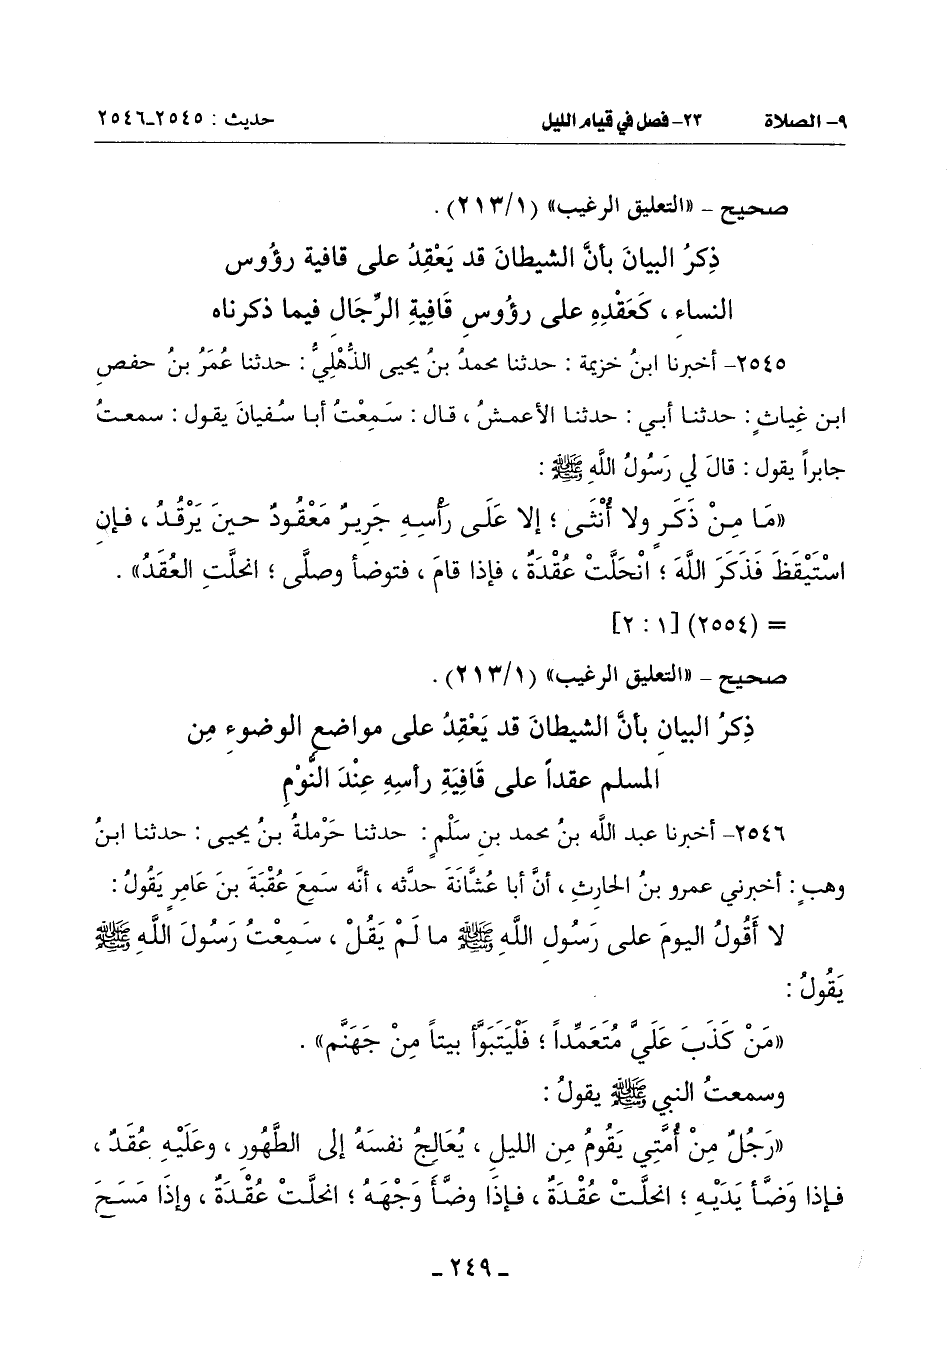 ٩- الصلاة ٢٣- فصل في قيام الليل حديث : ٢٥٤٥-٢٥٤٦
صحيح - «التعليق الرغيب» (١/٢١٣) .
ذِكرُ البيانَ بأنَّ الشيطانَ قد يَعْقِدُ على قافية رؤُوس
النساءِ ، كَعَقْدِهِ على رؤُوسِ قَافِيةِ الرِّجَال فيما ذكرناه
٢٥٤٥- أخبرنا ابنُ خزيمة : حدثنا محمدُ بنُ يحيى الذُّهْلِيُّ : حدثنا عُمَرُ بنُ حفصِ
ابن غِياثٍ : حدثنا أبي : حدثنا الأعمشُ ، قال : سَمِعْتُ أبا سُفيانَ يقول : سمعتُ
جابراً يقول : قالَ لي رَسُولُ اللَّهِ ﷺ :
«مَا مِنْ ذَكَرٍ ولا أُنْثَى ؛ إلا عَلَى رَأْسِهِ جَرِيرٌ مَعْقُودٌ حينَ يَرْقُدُ ، فإنِ
اسْتَيْقَظَ فَذَكَرَ اللَّهَ ؛ انْحَلَّتْ عُقْدَةٌ ، فإذا قامَ ، فتوضأ وصلَّى ؛ انحلَّتِ العُقَدُ» .
= (٢٥٥٤) [١ : ٢]
صحيح - «التعليق الرغيب» (١/٢١٣) .
ذِكرُ البيانِ بأنَّ الشيطانَ قد يَعْقِدُ على مواضعِ الوضوءِ مِن
المسلمِ عقداً على قَافِيَةِ رأسِهِ عِنْدَ النَّوْمِ
٢٥٤٦- أخبرنا عبد اللَّه بنُ محمد بنِ سَلْمٍ : حدثنا حَرْملةُ بنُ يحيى : حدثنا ابنُ
وهبٍ : أخبرني عمرو بنُ الحارثِ ، أنَّ أبا عشَّانَةَ حدَّثه ، أنَّه سَمِعَ عُقْبَةَ بنَ عَامِرٍ يَقُولُ :
لا أَقُولُ اليومَ على رَسُولِ اللَّهِ ﷺ ما لَمْ يَقُلْ ، سَمِعْتُ رَسُولَ اللَّهِ ﷺ
يَقُولُ :
«مَنْ كَذَبَ عَلَيَّ مُتَعَمِّداً ؛ فَلْيَتَبَوَّأْ بيتاً مِنْ جَهَنَّم» .
وسمعتُ النبي ﷺ يقولُ :
«رَجُلٌ مِنْ أُمَّتِي يَقُومُ مِن الليل ، يُعَالِجُ نفسَهُ إلى الطَّهُورِ ، وعَلَيْهِ عُقَدٌ ،
فإذا وَضَّأَ يَدَيْهِ ؛ انحلَّتْ عُقْدَةٌ ، فإذَا وضَّأَ وَجْهَهُ ؛ انحلَّتْ عُقْدَةٌ ، وإذَا مَسَحَ
- ٢٤٩ -